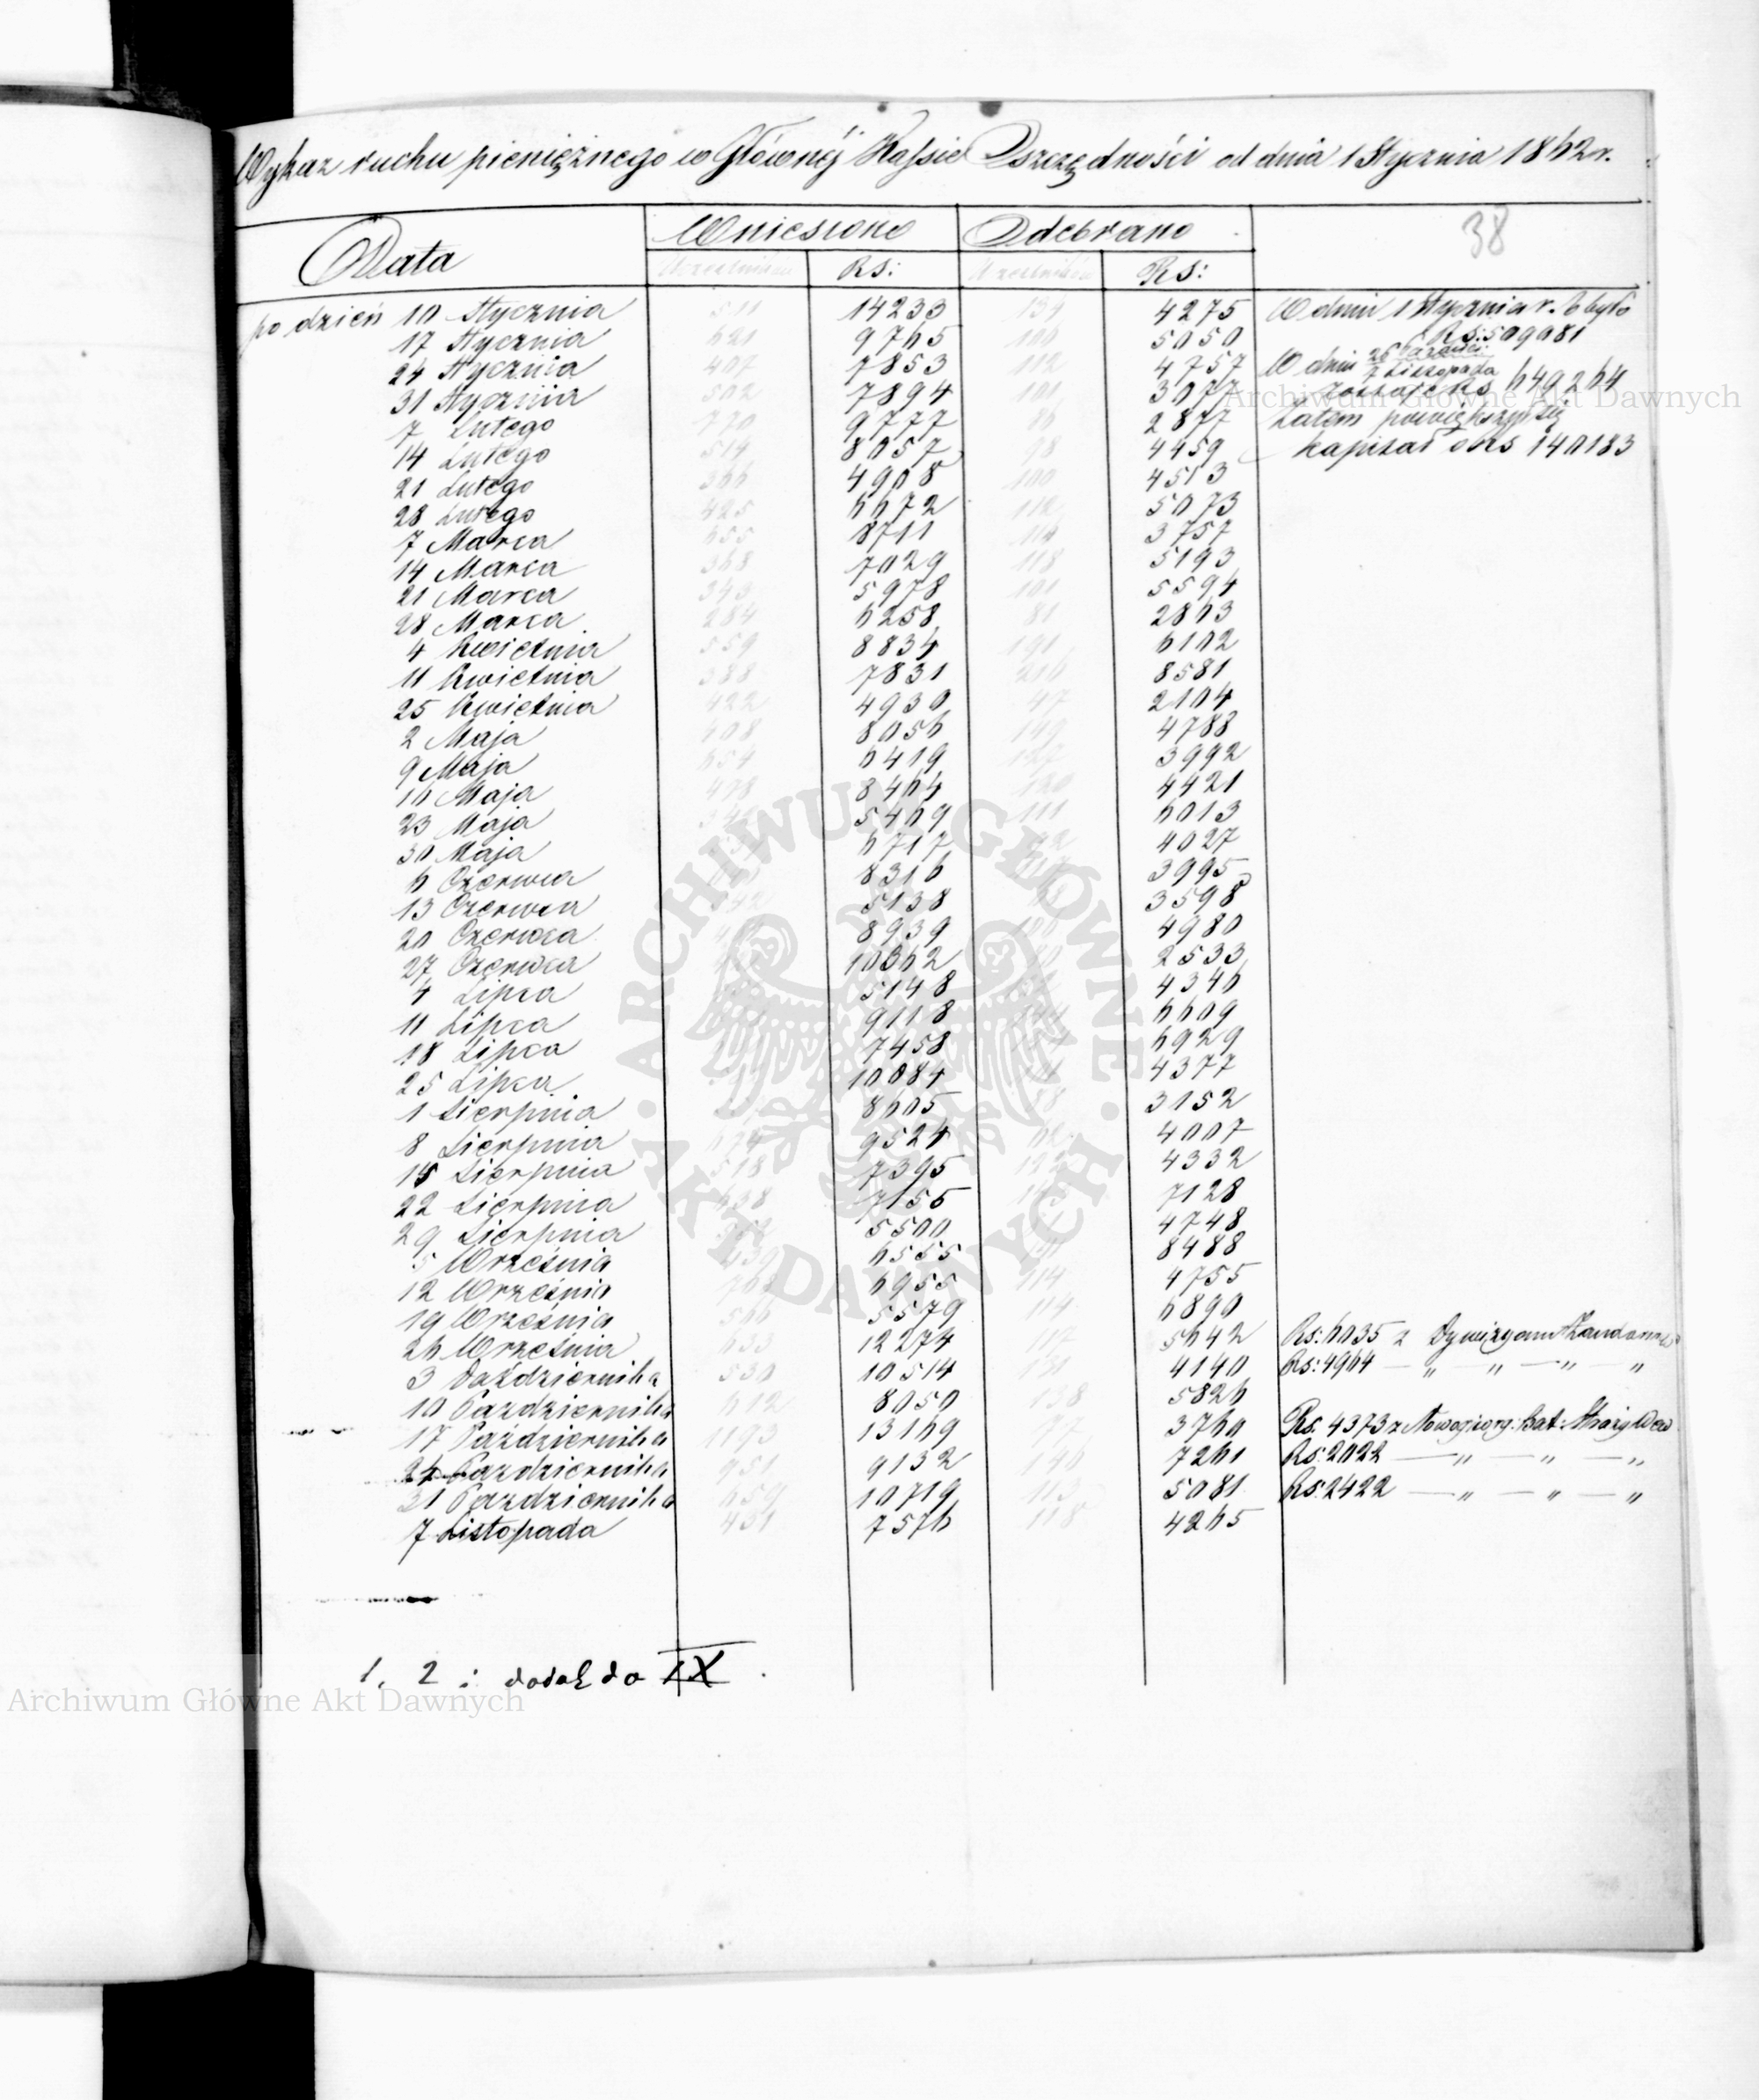 Wykaz ruchu pieniężnego w Głównéj Kassie Oszczędności od dnia 1 Stycznia 1862 r.
38
Data Wniesiono Odebrano
Rs: Rs:
po dzień 10 Stycznia 511 14233 134 4275 W dniu 1 Stycznia r. b było
17 Stycznia 621 9765 106 5050 Rs: 509081
24 Stycznia 407 7853 112 4757 W dniu 7 Listopada
31 Stycznia 502 7894 101 3077 Rs 649264
7 Lutego 770 9777 86 2877 Zatém powiększył się
14 Lutego 514 8057 98 4459 kapitał o Rs 140183
21 Lutego 366 4908 100 4513
28 Lutego 425 6672 112 5073
7 Marca 655 8711 3757
14 Marca 368 7029 118 5193
21 Marca 343 5978 101 5594
28 Marca 284 6258 81 2863
4 Kwietnia 559 8834 191 6102
11 Kwietnia 388 7831 216 8581
25 Kwietnia 422 4930 47 2104
2 Maja 408 8056 149 4788
9 Maja 654 6419 127 3992
16 Maja 498 8464 4421
23 Maja 5409 111 6013
30 Maja 6717 4027
6 Czerwca 8316 3995
13 Czerwca 5138 3598
20 Czerwca 8939 4980
27 Czerwca 10362 2533
4 Lipca 5148 4346
11 Lipca 9118 6609
18 Lipca 7458 6929
25 Lipca 10084 4377
1 Sierpnia 8605 3152
8 Sierpnia 674 9524 4007
15 Sierpnia 518 7395 4332
22 Sierpnia 638 7155 7128
29 Sierpnia 5500 4748
5 Września 6555 8488
12 Września 6955 114 4755
19 Września 566 5579 114 6890
26 Września 633 12274 5642 Rs: 6035 z
3 Października 530 10514 4140 Rs: 4964 — „ „ — „ „
10 Października 612 8050 138 5826
17 Października 1193 13169 3760 Rs. 4373 z Nowogiorg: Bat:
24 Października 951 9132 146 7261 Rs: 2022 — „ — „ — „
31 Października 659 10719 113 5081 Rs. 2422 — „ — „ — „
7 Listopada 451 7576 118 4265
1, 2 i dodał do IX.
Archiwum Główne Akt Dawnych
Archiwum Główne Akt Dawnych
ARCHIWUM GŁÓWNE · AKT DAWNYCH ·